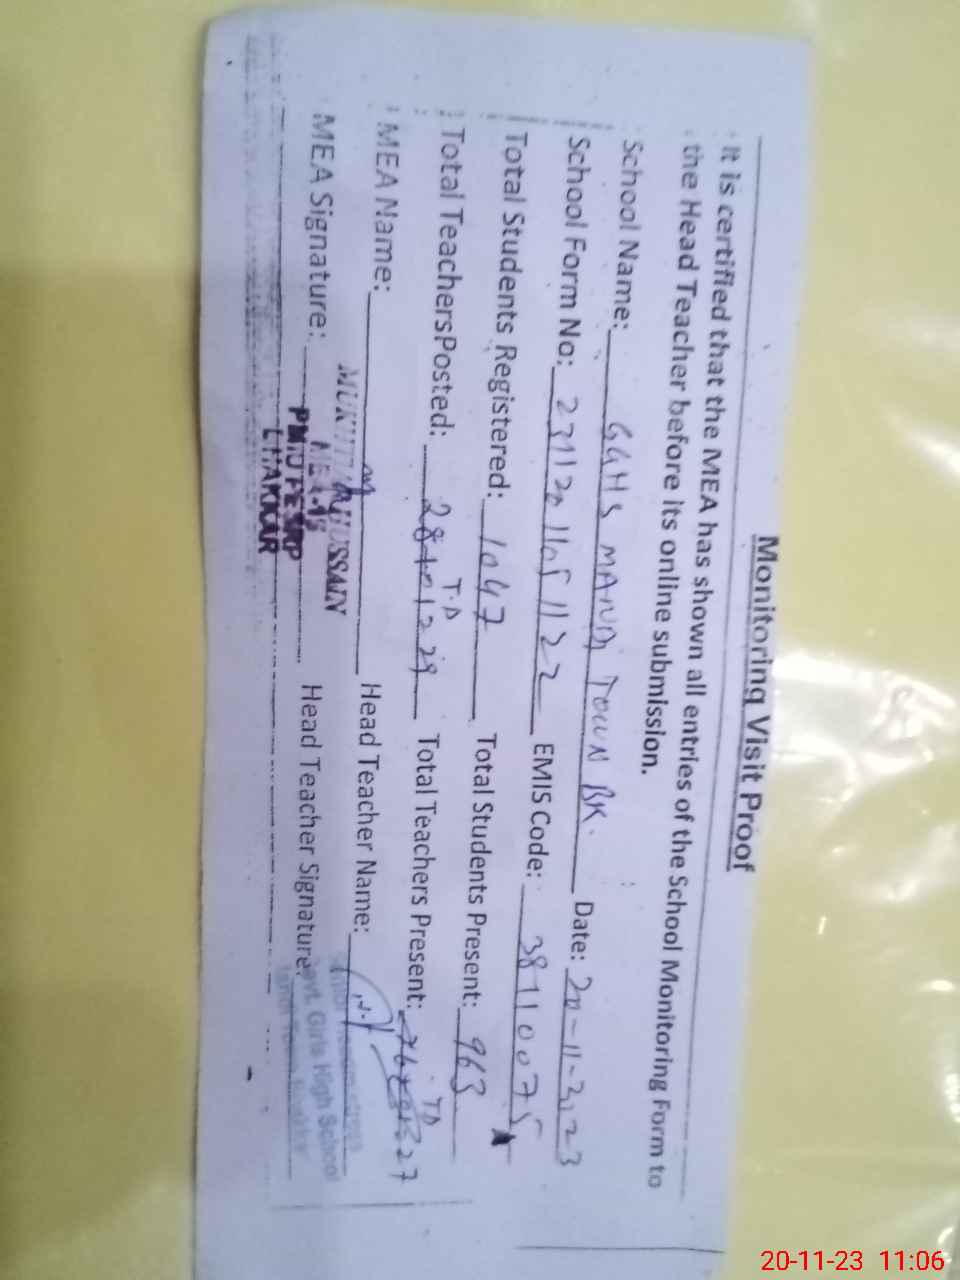 Monitoring Visit Proof
It is certified that the MEA has shown all entries of the School Monitoring Form to
the Head Teacher before its online submission.
School Name: GGHS MANDI TOWN BK. Date: 20-11-2023
School Form No: 23112011051122 EMIS Code: 38110075
Total Students Registered: 1047 Total Students Present: 963
T.D TD
Total TeachersPosted: 28+01=29 Total Teachers Present: 27
MEA Name: Head Teacher Name:
HUSSAIN
MEA Signature: Head Teacher Signature:
PMIU PESRP
BHAKKAR
Govt. Girls High School
20-11-23 11:06